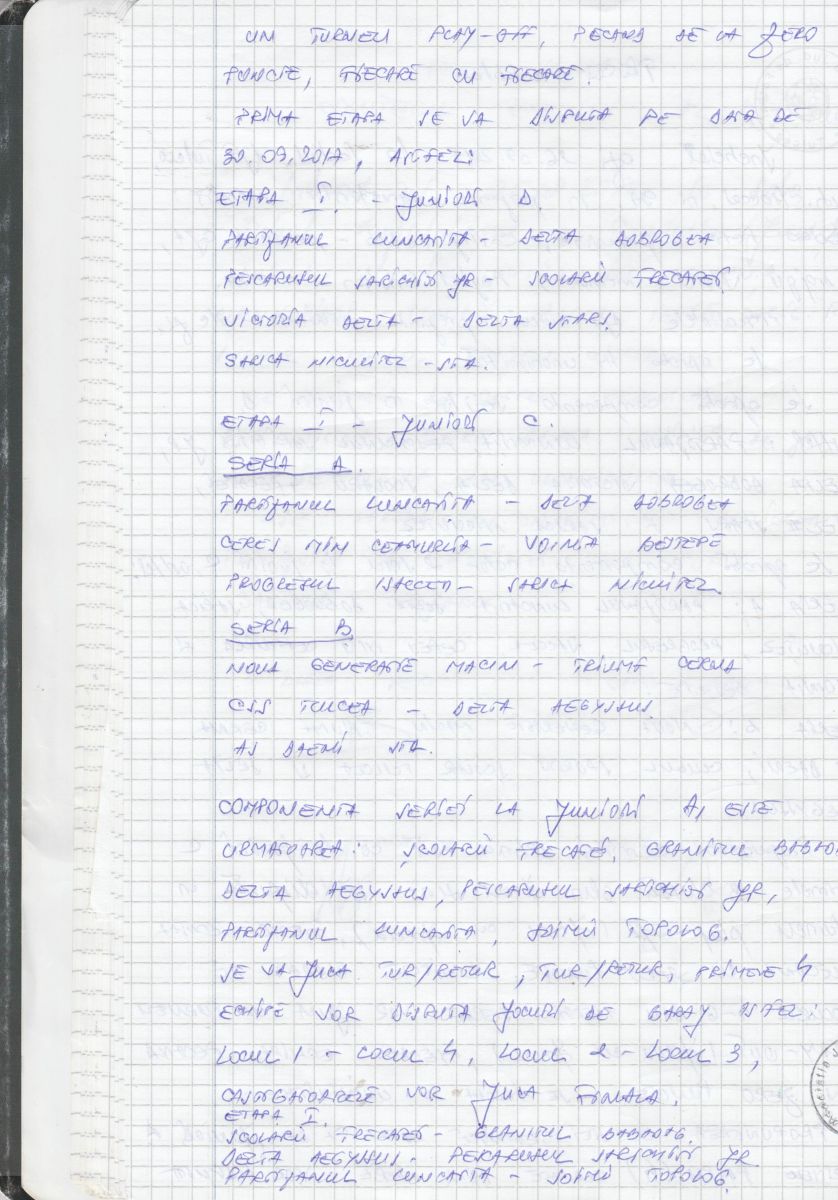 UN TURNEU PLAY-OFF, PECAND DE LA ZERO
PUNCTE, FIECARE CU FIECARE.
PRIMA ETAPA SE VA DISPUTA PE DATA DE
30.09.2017, ASTFEL:
ETAPA I. - JUNIORI D.
PARTIZANUL LUNCAVITA - DELTA DOBROGEA
PESCARUSUL SARICHIOI JR - SCOLARII FRECATEI.
VICTORIA DELTA - DELTA STARS.
SARICA NICULITEL - STA.
ETAPA I - JUNIORI C.
SERIA A.
PARTIZANUL LUNCAVITA - DELTA DOBROGEA
CERES MIN CEAMURLIA - VOINTA BESTEPE
PROGRESUL ISACCEA - SARICA NICULITEL.
SERIA B
NOUA GENERATIE MACIN - TRIUMF CERNA
CSS TULCEA - DELTA AEGYSSUS.
AS DAENI STA.
COMPONENTA SERIEI LA JUNIORI A, ESTE
URMATOAREA: SCOLARII FRECATEI, GRANITUL BABADAG
DELTA AEGYSSUS, PESCARUSUL SARICHIOI JR,
PARTIZANUL LUNCAVITA, SOIMII TOPOLOG.
SE VA JUCA TUR/RETUR, TUR/RETUR, PRIMELE 4
ECHIPE VOR DISPUTA JOCURI DE BARAJ ASTFEL:
LOCUL 1 - LOCUL 4, LOCUL 2 - LOCUL 3,
CASTIGATOARELE VOR JUCA FINALA.
ETAPA I.
SCOLARII FRECATEI - GRANITUL BABADAG.
DELTA AEGYSSUS - PESCARUSUL SARICHIOI JR
PARTIZANUL LUNCAVITA - SOIMII TOPOLOG.